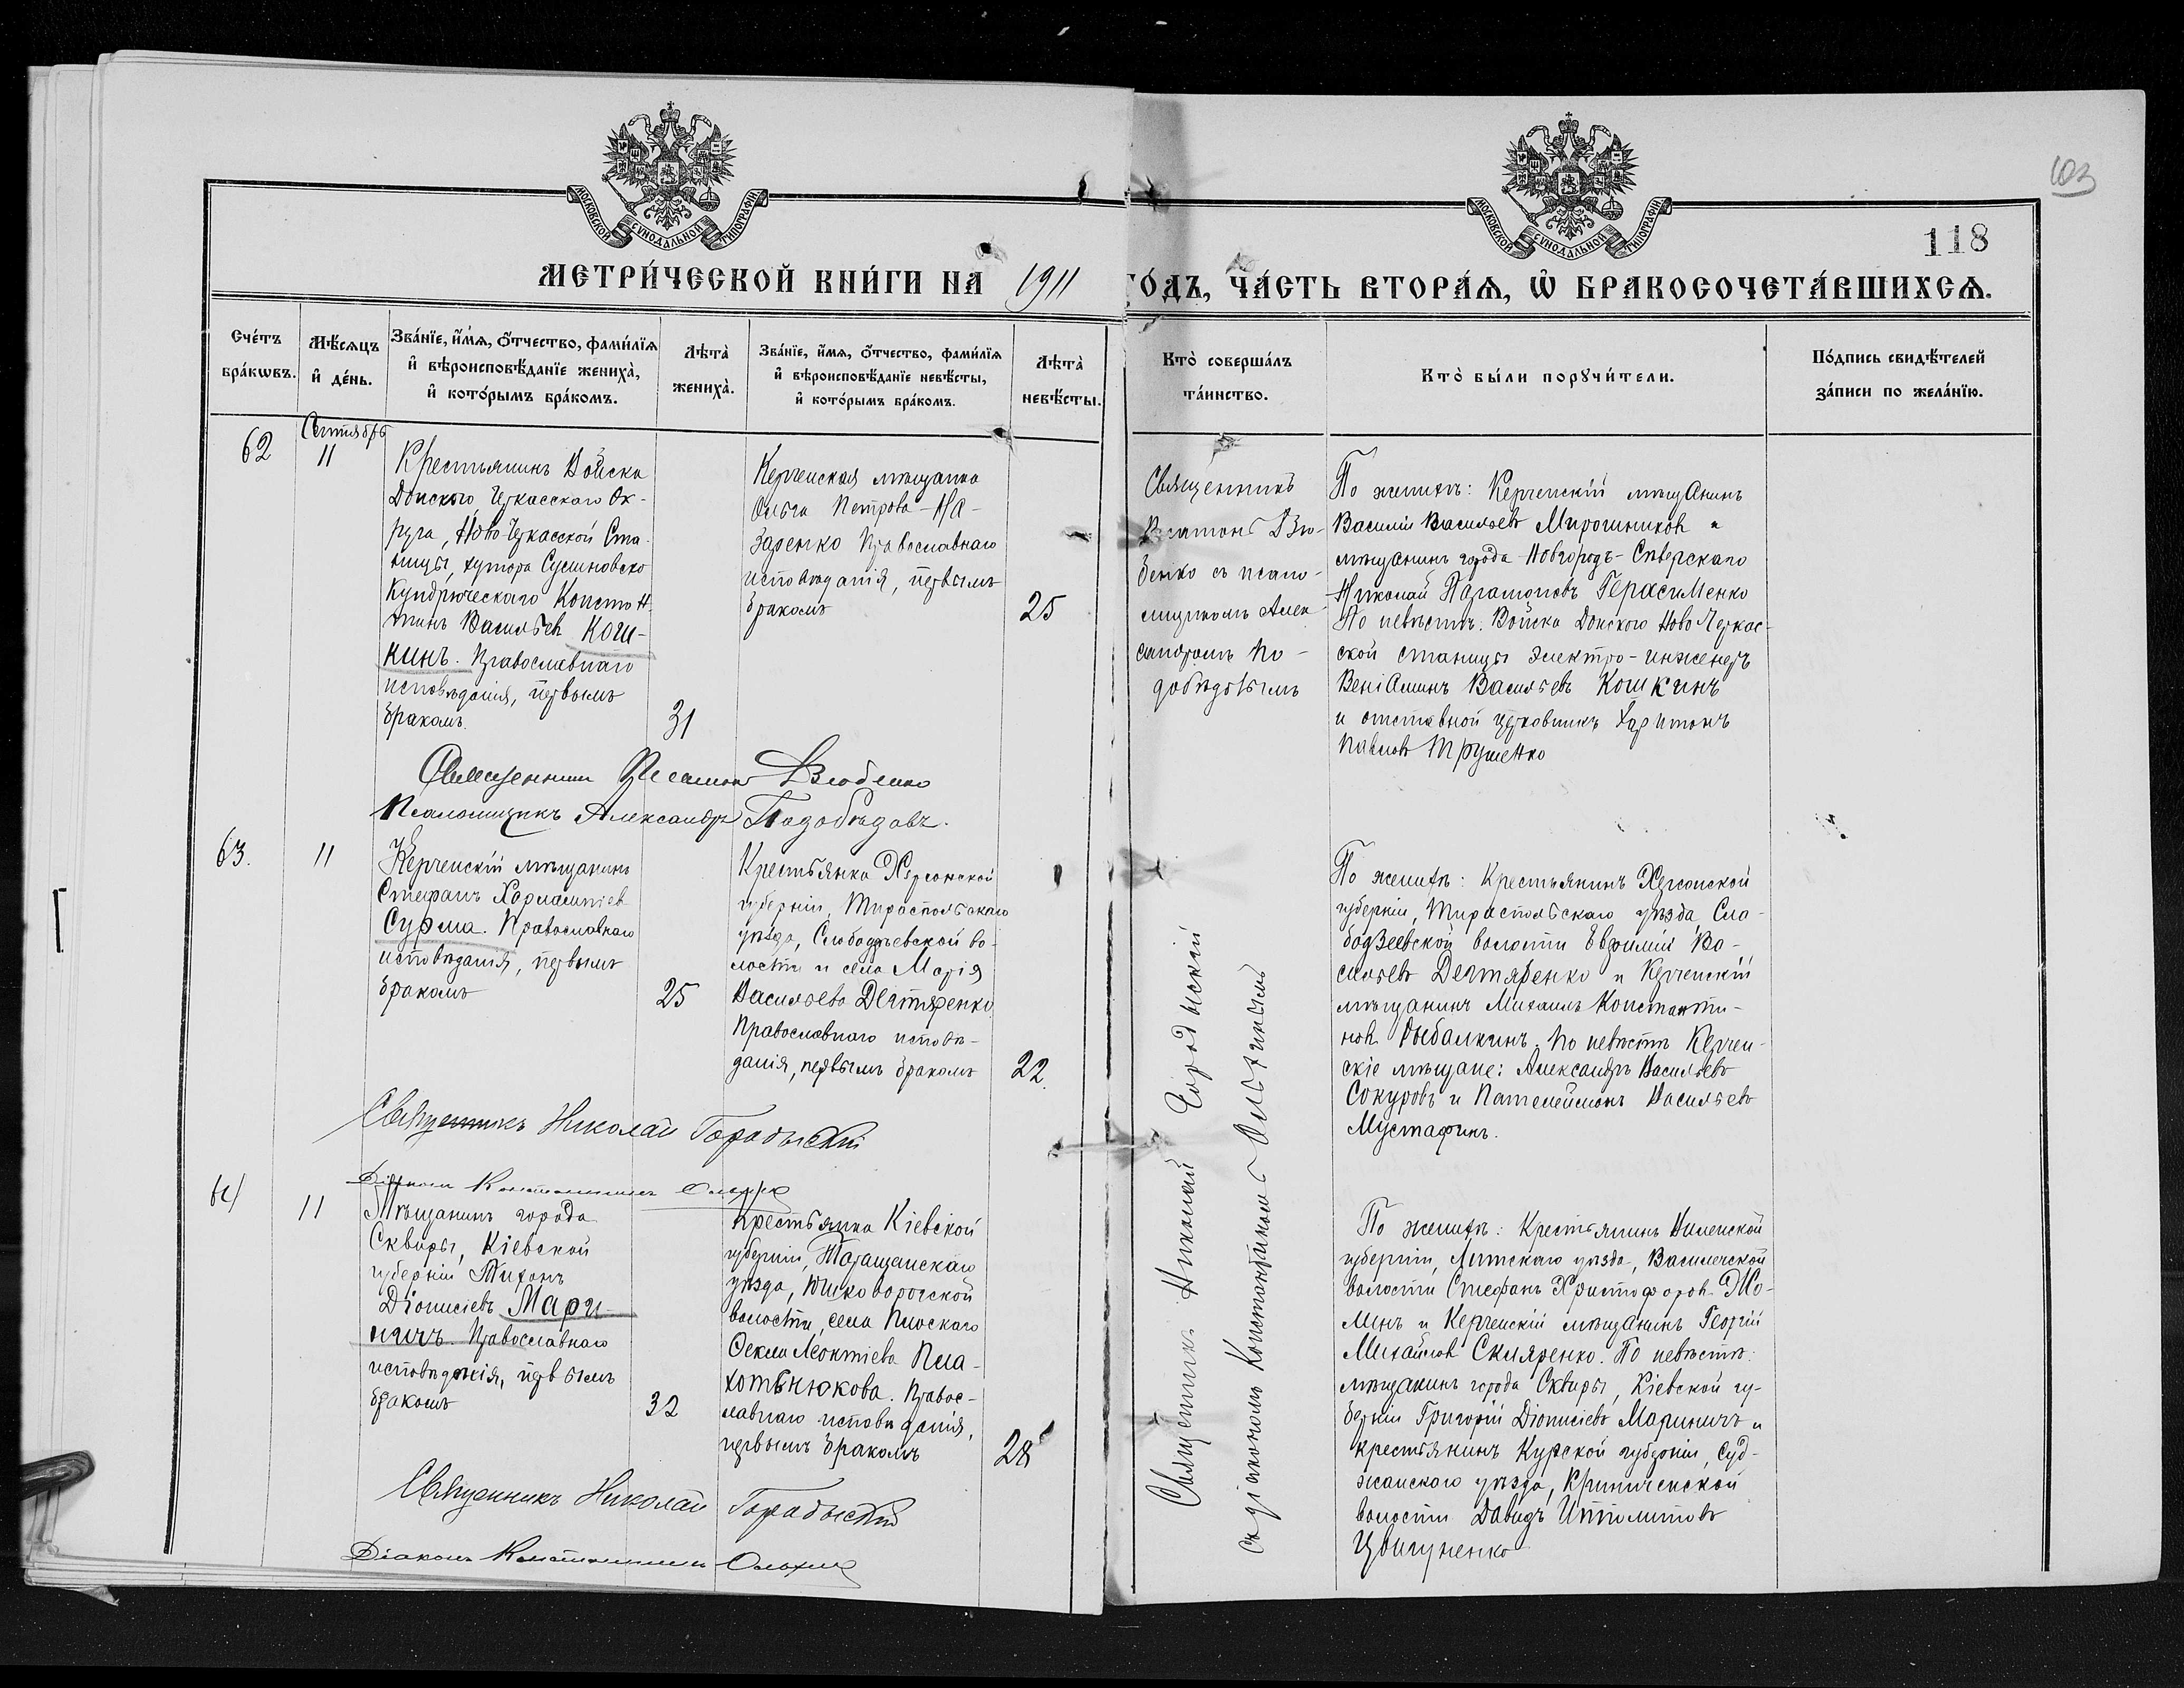 103
118
МОСКОВСКОЙ СУНОДАЛЬНОЙ ТИПОГРАФІИ
МОСКОВСКОЙ СУНОДАЛЬНОЙ ТИПОГРАФІИ
МЕТРИ́ЧЕСКОЙ КНИ́ГИ НА 1911 ГО́ДЪ, ЧА́СТЬ ВТОРА́Ѧ, Ѽ БРАКОСОЧЕТА́ВШИХСѦ.
Сче́тъ
бра́кѡвъ.
Мѣ́сѧцъ
и҆ де́нь.
Зва́нїе, и҆́мѧ, ѻ҆́тчество, фами́лїѧ
и҆ вѣроисповѣ́данїе жениха̀,
и҆ кото́рымъ бра́комъ.
Лѣта̀
жениха̀.
Зва́нїе, и҆́мѧ, ѻ҆́тчество, фами́лїѧ
и҆ вѣроисповѣ́данїе невѣ́сты,
и҆ кото́рымъ бра́комъ.
Лѣта̀
невѣ́сты.
Кто̀ соверша́лъ
та́инство.
Кто̀ бы́ли порꙋчи́тели.
По́дпись свидѣ́телей
за́писи по жела́нїю.
62
Сентябрь
11
Крестьянинъ Войска
Донского, Черкасскаго Ок-
руга, Ново-Черкасской Ста-
ницы, хутора Сусиновско
Кундрюческаго Констан
тинъ Васильевъ Кош-
кинъ. Православнаго
исповѣданія, первымъ
бракомъ.
31
Керченская мѣщанка
Ольга Петрова На-
заренко Православнаго
исповѣданія, первымъ
бракомъ
25
Священникъ
Взю-
бенко съ псало-
мщикомъ Алек-
сандромъ По-
добѣдовымъ
По женихѣ: Керченскій мѣщанинъ
Василій Васильевъ Мирошниковъ и
мѣщанинъ города Новгородъ-Сѣверскаго
Николай Парамоновъ Герасименко
По невѣстѣ: Войска Донского Ново Черкас-
ской станицы электро-инженеръ
Веніаминъ Васильевъ Кошкинъ
и отставной церковникъ Харитонъ
Павловъ Трушенко
Священникъ Взюбенко
Псаломщикъ Александръ Подобѣдовъ.
63.
11
Керченскій мѣщанинъ
Стефанъ Харлампіев
Сурма. Православнаго
исповѣданія, первымъ
бракомъ
25
Крестьянка Херсонской
губерніи, Тираспольскаго
уѣзда, Слободзѣевской во-
лости и села Марія
Васильева Дегтяренко
Православнаго исповѣ-
данія, первымъ бракомъ
22.
Священникъ Николай Городыскій
съ діакономъ Константиномъ
По женихѣ: Крестьянинъ Херсонской
губерніи, Тираспольскаго уѣзда, Сло-
бодзеевской волости Евфимій Ва-
сильевъ Дегтяренко и Керченскій
мѣщанинъ Михаилъ Константи-
новъ Рыбалкинъ. По невѣстѣ Керчен-
скіе мѣщане: Александръ Васильевъ
Сокуровъ и Пателеймонъ Васильевъ
Мустафинъ.
Священникъ Николай Городыскій
Діаконъ Константинъ
64
11
Мѣщанинъ города
Сквиры, Кіевской
губерніи Тихонъ
Діонисіевъ Мари-
ничъ. Православнаго
исповѣданія, первымъ
бракомъ
32
Крестьянка Кіевской
губерніи, Таращанскаго
уѣзда,
волости, села Плоскаго
Ѳекла Леонтіева Пла-
хотьнюкова. Правос-
лавнаго исповѣданія,
первымъ бракомъ
28
По женихѣ: Крестьянинъ Виленской
губерніи, уѣзда,
волости Стефанъ Христофоровъ
и Керченскій мѣщанинъ Георгій
Михайловъ Скляренко. По невѣстѣ:
мѣщанинъ города Сквиры, Кіевской гу-
берніи Григорій Діонисіевъ Мариничъ и
крестьянинъ Курской губерніи, Суд-
жанскаго уѣзда, Криниченской
волости Давидъ Ипполитовъ
Цвигуненко
Священникъ Николай Городыскій
Діаконъ Константинъ